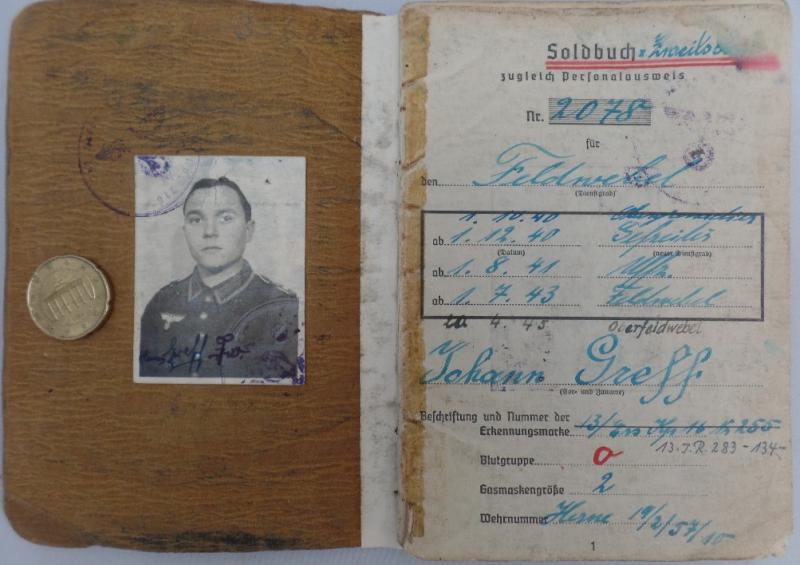 Soldbuch
zugleich Personalausweis
Nr. 2078
für
den Feldwebel
(Dienstgrad)
1. 10. 40
ab 1. 12. 40 Gefreiter
(Datum) (neuer Dienstgrad)
ab 1. 8. 41 Uffz.
ab 1. 7. 43 Feldwebel
20 4. 45 Oberfeldwebel
Johann Greff
(Vor- und Zuname)
Beschriftung und Nummer der
Erkennungsmarke 13/ Ers Kp 255
13. I.R. 283 - 134 -
Blutgruppe O
Gasmaskengröße 2
Wehrnummer Herne 19/2/57/10
1